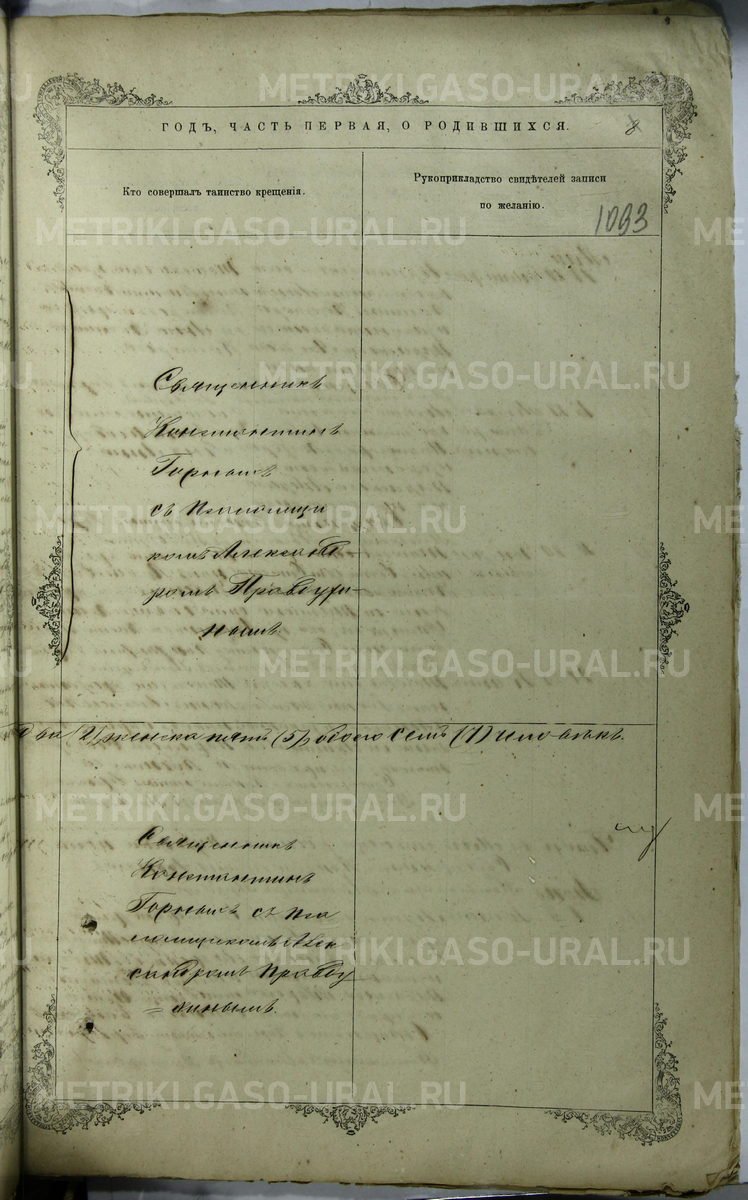 ГОДЪ, ЧАСТЬ ПЕРВАЯ, О РОДИВШИХСЯ.
8
Кто совершалъ таинство крещенія.
Рукоприкладство свидѣтелей записи
по желанію.
1093
Священникъ
Константинъ
Горныхъ
съ Псаломщи
комъ Александ
ромъ Правдухи-
нымъ
два (2) женска пять (5) обоего семь (7) человѣкъ.
Священникъ
Константинъ
Горныхъ съ Пса
ломщикомъ Алек
сандромъ Правду
=хинымъ.
METRIKI.GASO-URAL.RU